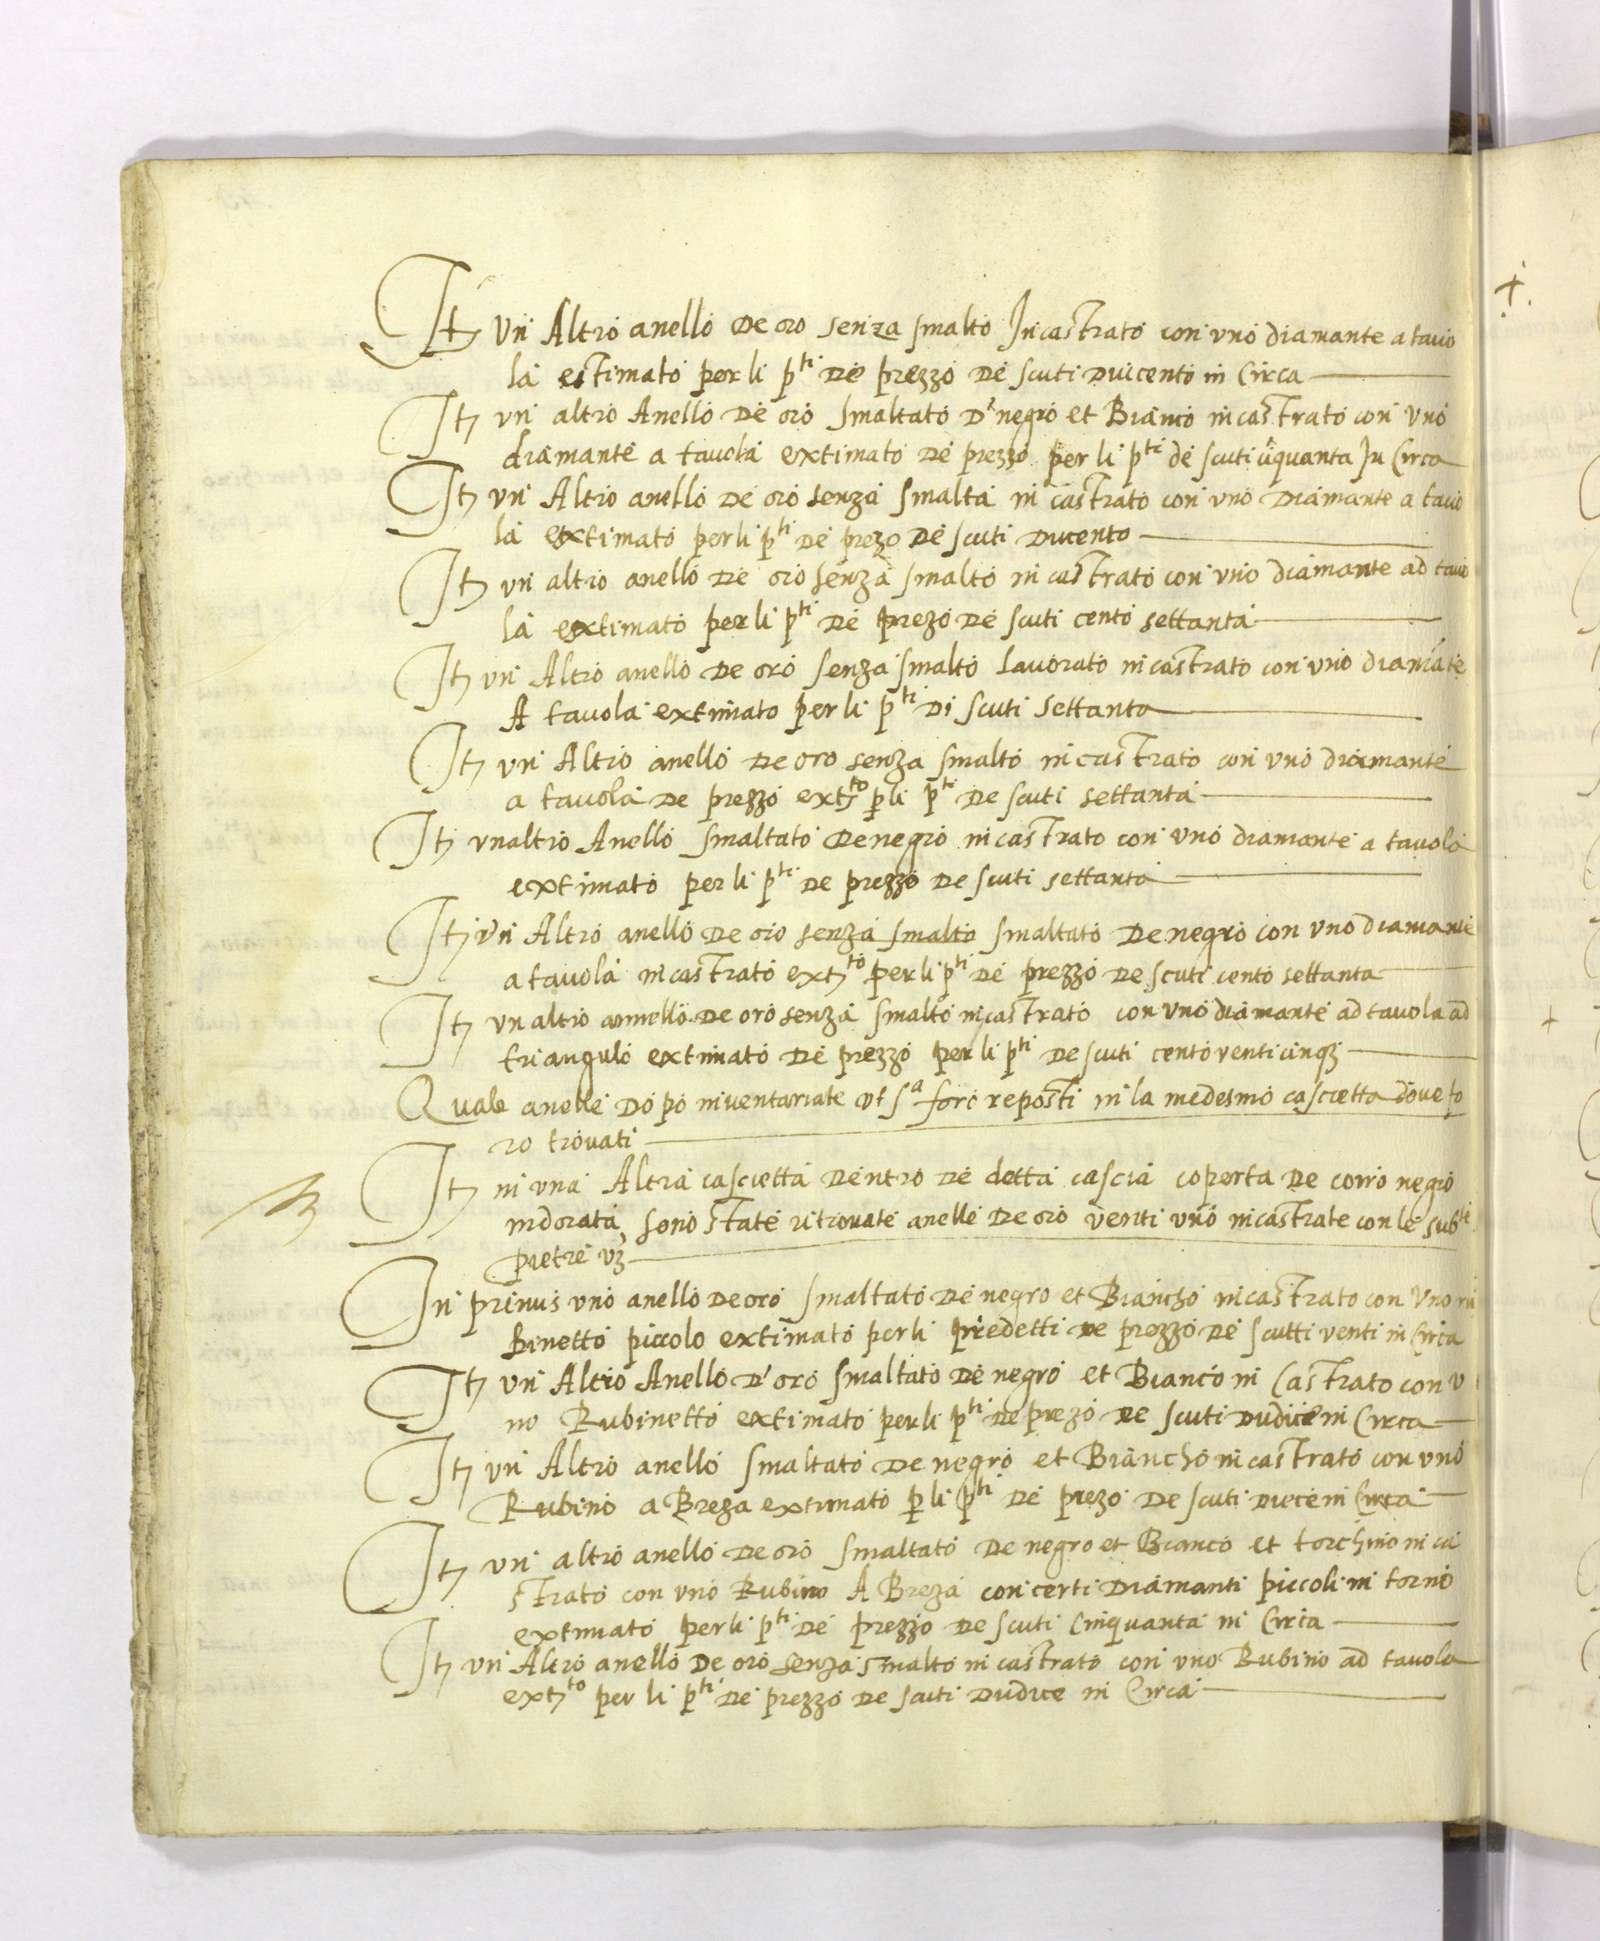 It Un Altro anello De oro senza smalto Incastrato con uno diamante a tauo
la estimato per li p^ti De prezzo De scuti Duicento in Circa
It un altro Anello De oro smaltato D negro et Bianco incastrato con uno
diamante a tauola extimato De prezzo per li p^ti de scuti cīquanta In Circa
It un Altro anello De oro senza smalta in castrato con uno Diamante a tauo
la extimato per li p^ti De prezo De scuti Ducento
It un altro anello De oro senza smalto incastrato con uno diamante ad tauo
la extimato per li p^ti De prezo De scuti cento settanta
It un Altro anello De oro senza smalto Lauorato incastrato con uno diamāte
A tauola extimato per li p^ti Di scuti settanta
It un Altro anello De oro senza smalto incastrato con uno diamante
a tauola De prezzo ext^to p li p^ti De scuti settanta
It unaltro Anello smaltato De negro incastrato con uno diamante a tauola
extimato per li p^ti De prezzo De scuti settanta
It un Altro anello De oro senza smalto smaltato De negro con uno diamante
a tauola incastrato ext^to per li p^ti De prezzo De scuti cento settanta
It un altro annello De oro senza smalto incastrato con uno diamante ad tauola ad
triangulo extimato De prezzo per li p^ti De scuti cento venti cinq3
Quale anelle Dopo inventariate ut s^a foro reposti in la medesmo cascietta doue fo
ro trouati
It in una Altra cascietta Dentro De detta cascia coperta De corro negro
indorata sono state ritrouate anelle De oro venti uno incastrate con le sub^te
pietre v3
In primus uno anello De oro smaltato De negro et Biancho incastrato con Uno ru
binetto piccolo extimato per li predetti De prezzo De scutti venti in Circa
It un Altro Anello D' oro smaltato De negro et Bianco in Castrato con u
no Rubinetto extimato per li p^ti De prezo De scuti Dudice in Circa
It un Altro anello smaltato De negro et Biancho incastrato con uno
Rubino a Breza extimato p li p^ti De prezo De scuti Diece in Circa
It un altro anello De oro smaltato De negro et Bianco et torchino in ca
strato con uno Rubino A Breza con certi Diamanti piccoli in torno
extimato per li p^ti De prezzo De scuti Cinquanta in Circa
It un Altro anello De oro senza smalto in castrato con uno Rubino ad tauola
ext^to per li p^ti De prezzo De scuti Dudice in Circa